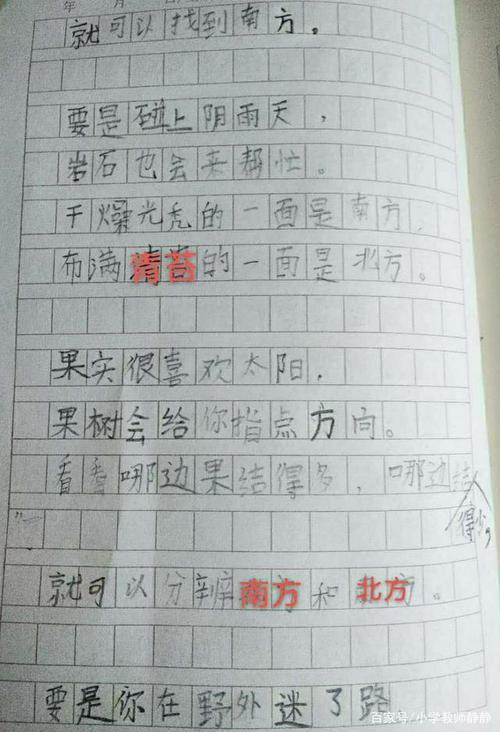 年 月
就可以找到南方。
要是碰上阴雨天，
岩石也会来帮忙。
干燥光秃的一面是南方，
布满青苔的一面是北方。
果实很喜欢太阳，
果树会给你指点方向。
看看哪边果结得多，哪边结得少，
就可以分辨南方和北方。
要是你在野外迷了路
百家号/小学教师静静